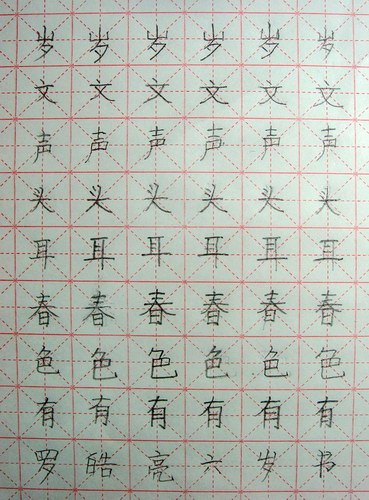 岁岁岁岁岁岁
文文文文文文
声声声声声声
头头头头头头
耳耳耳耳耳耳
春春春春春春
色色色色色色
有有有有有有
罗皓亮六岁书